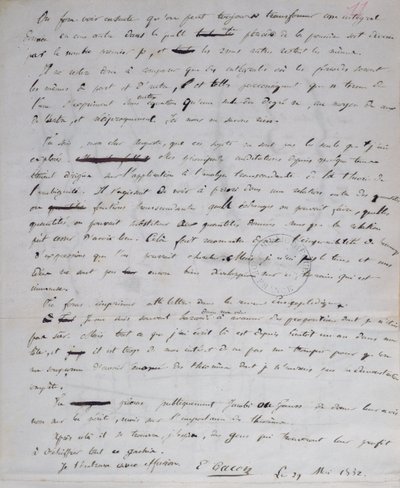 On fera voir ensuite qu'on peut toujours transformer une intégrale
donnée en une autre dans laquelle une période de la première soit divisée
par le nombre premier p, et les 2n-1 autres restent les mêmes.
Il ne restera donc à comparer que des intégrales où les périodes seront
les mêmes de part et d'autre, et telles par conséquent que n termes de
l'une s'expriment sans autre équation qu'une seule du degré n, au moyen de ceux
de l'autre, et réciproquement. Ici nous ne savons rien.
Tu sais, mon cher Auguste, que ces sujets ne sont pas les seuls que j'aie
explorés. Mes principales méditations depuis quelque temps
étaient dirigées sur l'application à l'analyse transcendante de la théorie de
l'ambiguité. Il s'agissait de voir à priori dans une relation entre des quantités
ou fonctions transcendantes quels échanges on pouvait faire, quelles
quantités on pouvait substituer aux quantités données sans que la relation
put cesser d'avoir lieu. Cela fait reconnaitre tout de suite l'impossibilité de beaucoup
d'expressions que l'on pourrait chercher. Mais je n'ai pas le temps et mes
idées ne sont pas encore bien développées sur ce terrain qui est
immense.
Tu feras imprimer cette lettre dans la revue encyclopédique.
Je me suis souvent hasardé dans ma vie à avancer des propositions dont je n'étais
pas sûr. Mais tout ce que j'ai écrit là est depuis bientôt un an dans ma
tête, et il est trop de mon intérêt de ne pas me tromper pour qu'on
me soupçonne d'avoir énoncé des théorèmes dont je n'aurais pas la démonstration
complète.
Tu prieras publiquement Jacobi ou Gauss de donner leur avis
non sur la vérité, mais sur l'importance des théorèmes.
Après cela il se trouvera, j'espère, des gens qui trouveront leur profit
à déchiffrer tout ce gachis.
Je t'embrasse avec effusion. E Galois Le 29 Mai 1832.